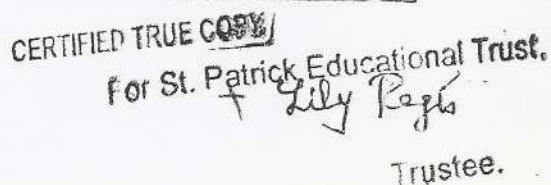 CERTIFIED TRUE COPY
For St. Patrick Educational Trust.
+ Lily Regis
Trustee.